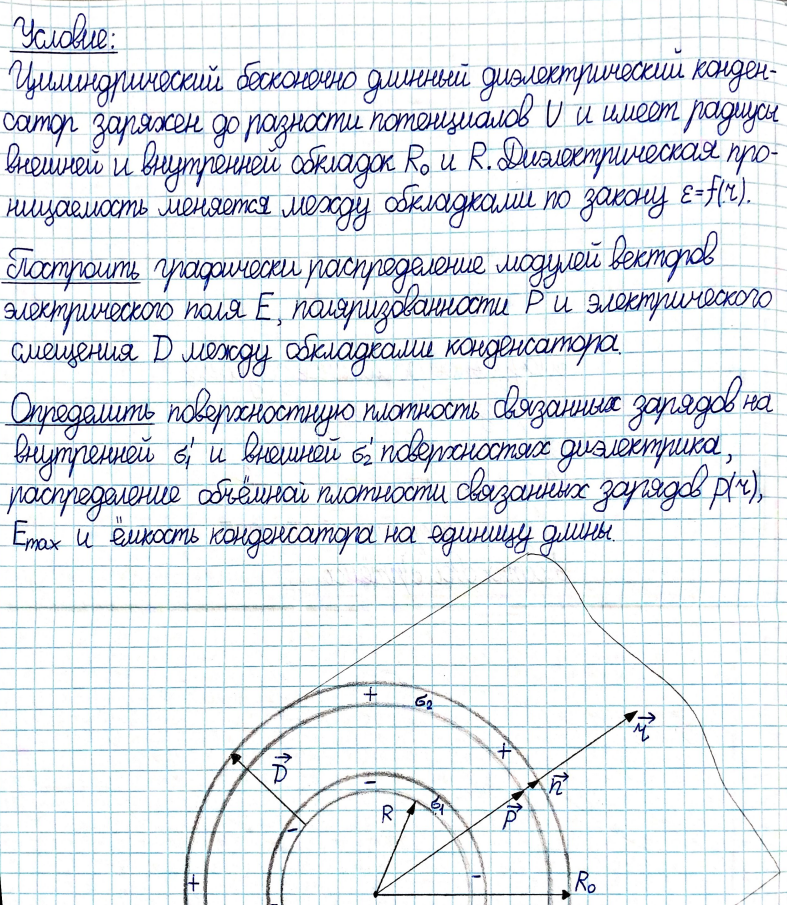 Условие:
Цилиндрический бесконечно длинный диэлектрический конден-
сатор заряжен до разности потенциалов U и имеет радиусы
внешней и внутренней обкладок R₀ и R. Диэлектрическая про-
ницаемость меняется между обкладками по закону ε=f(r).
Построить графически распределение модулей векторов
электрического поля E, поляризованности P и электрического
смещения D между обкладками конденсатора.
Определить поверхностную плотность связанных зарядов на
внутренней σ₁' и внешней σ₂' поверхностях диэлектрика,
распределение объёмной плотности связанных зарядов ρ'(r),
Emax и ёмкость конденсатора на единицу длины.
+ σ₂
r⃗
+
D⃗
- n⃗
R σ₁ P⃗
-
+ - R₀
-